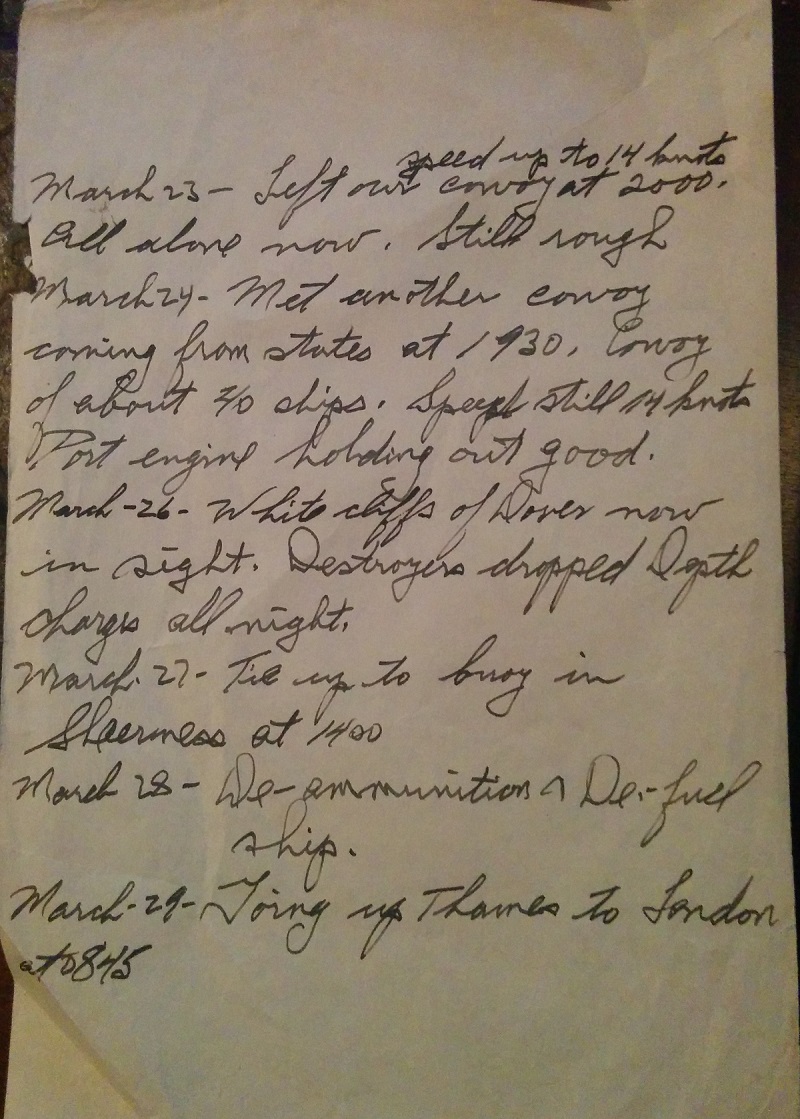 speed up to 14 knots
March 23 - Left our convoy at 2000.
All alone now. Still rough
March 24 - Met another convoy
coming from states at 1930. Convoy
of about 70 ships. Speed still 14 knots
Port engine holding out good.
March - 26 - White cliffs of Dover now
in sight. Destroyers dropped Depth
charges all night.
March. 27 - Tie up to buoy in
Sheerness at 1400
March 28 - De-ammunition & De-fuel
ship.
March - 29 - Going up Thames to London
at 0845